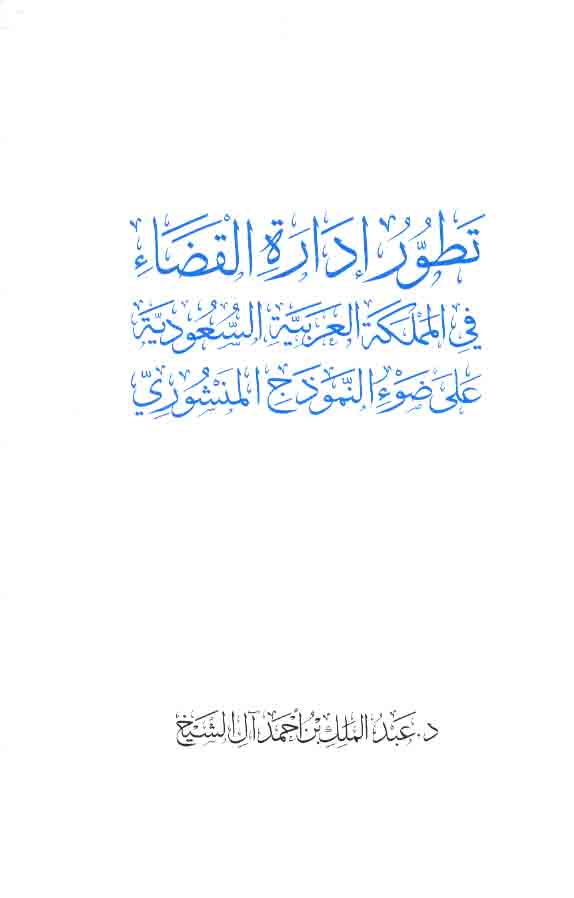 تَطَوُّرُ إدَارَةِ القَضَاءِ
فِي المَمْلَكَةِ العَرَبِيَّةِ السُّعُودِيَّةِ
عَلَى ضَوْءِ النَّمُوذَجِ المَنْشُورِيّ
د. عَبْدُ المَلِكِ بْنُ أحْمَد آل الشَّيْخ